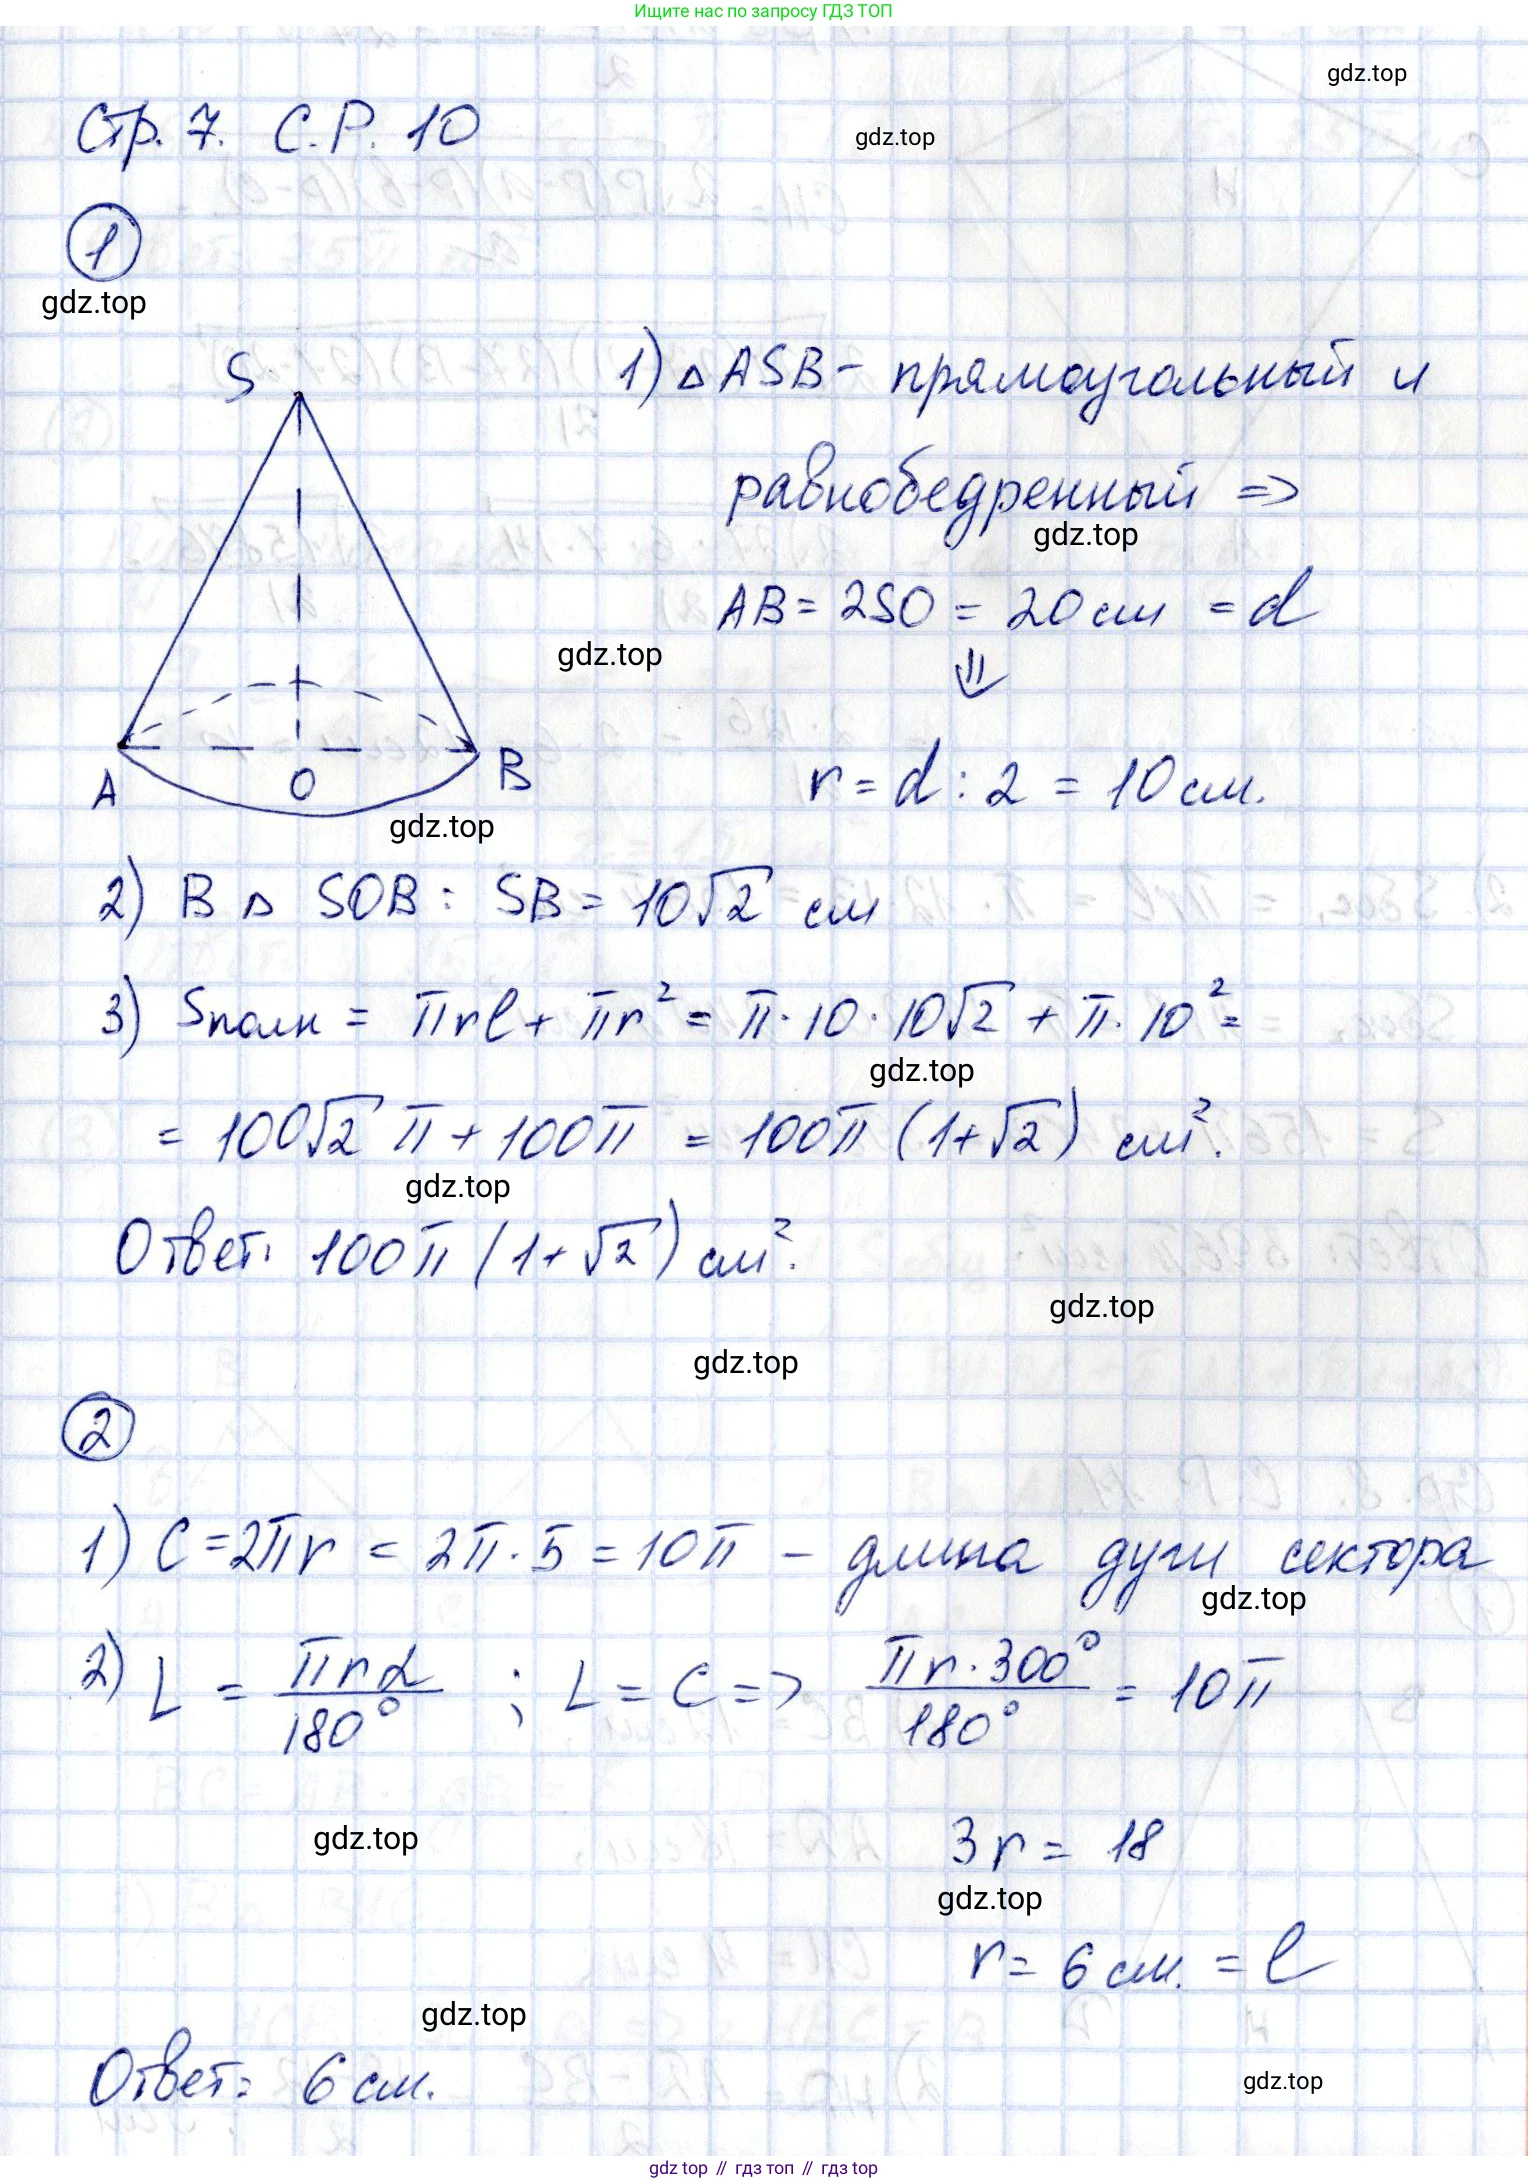 Ищите нас по запросу ГДЗ ТОП
gdz.top
Стр. 7. С.Р. 10
gdz.top
1
gdz.top
S
1) △ ASB - прямоугольный и
равнобедренный =>
gdz.top
AB = 2SO = 20 см = d
gdz.top
⇓
A O B
r = d : 2 = 10 см.
gdz.top
2) В △ SOB : SB = 10√2 см
3) Sполн = πrl + πr² = π · 10 · 10√2 + π · 10² =
gdz.top
= 100√2 π + 100π = 100π (1+√2) см².
gdz.top
Ответ: 100π (1+√2) см².
gdz.top
gdz.top
2
1) C = 2πr = 2π · 5 = 10π - длина дуги сектора
gdz.top
2) L = πrα/180° ; L = C => πr · 300°/180° = 10π
gdz.top
3r = 18
gdz.top
r = 6 см. = l
gdz.top
Ответ: 6 см.
gdz.top
gdz top // гдз топ // gdz top